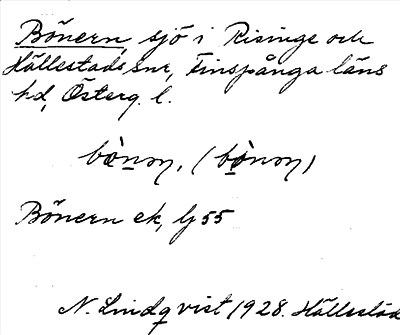 Bönern, sjö i Risinge och
Hällestads snr, Finspånga läns
hd, Österg. l.
bònon, (bònon)
Bönern ek, bl 55
N. Lindqvist 1928. Hällestad